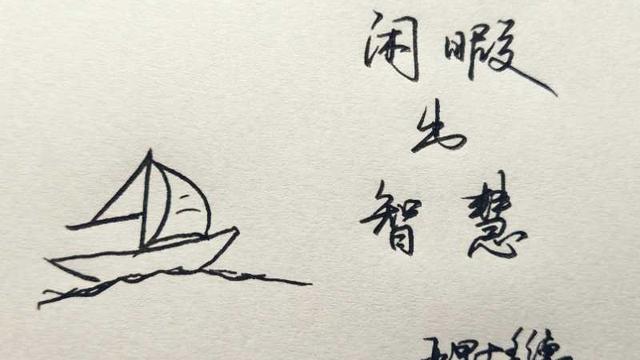 闲暇
出
智慧